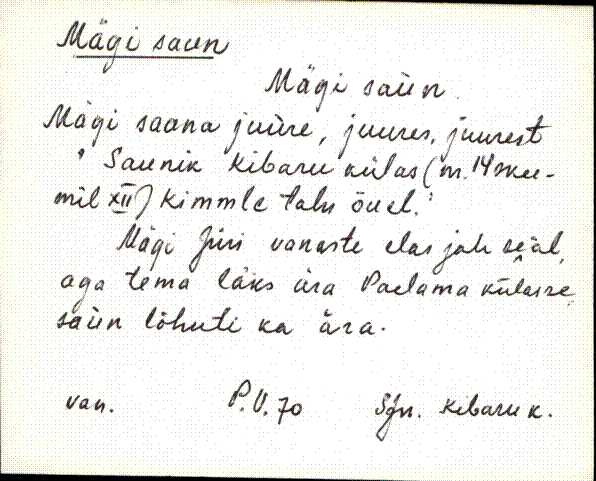 Mägi saun
Mägi saùn
Mägi saana juùre, juures, juurest
" Saunik Kibaru külas (m. 14 skee-
mil XII) Kimmle talu õuel."
Mägi Jüri vanaste elas jah seäl,
aga tema läks ära Paelama külasse,
saùn lõhuti ka ära.
van. P.V. 70 Sjn. Kibaru k.